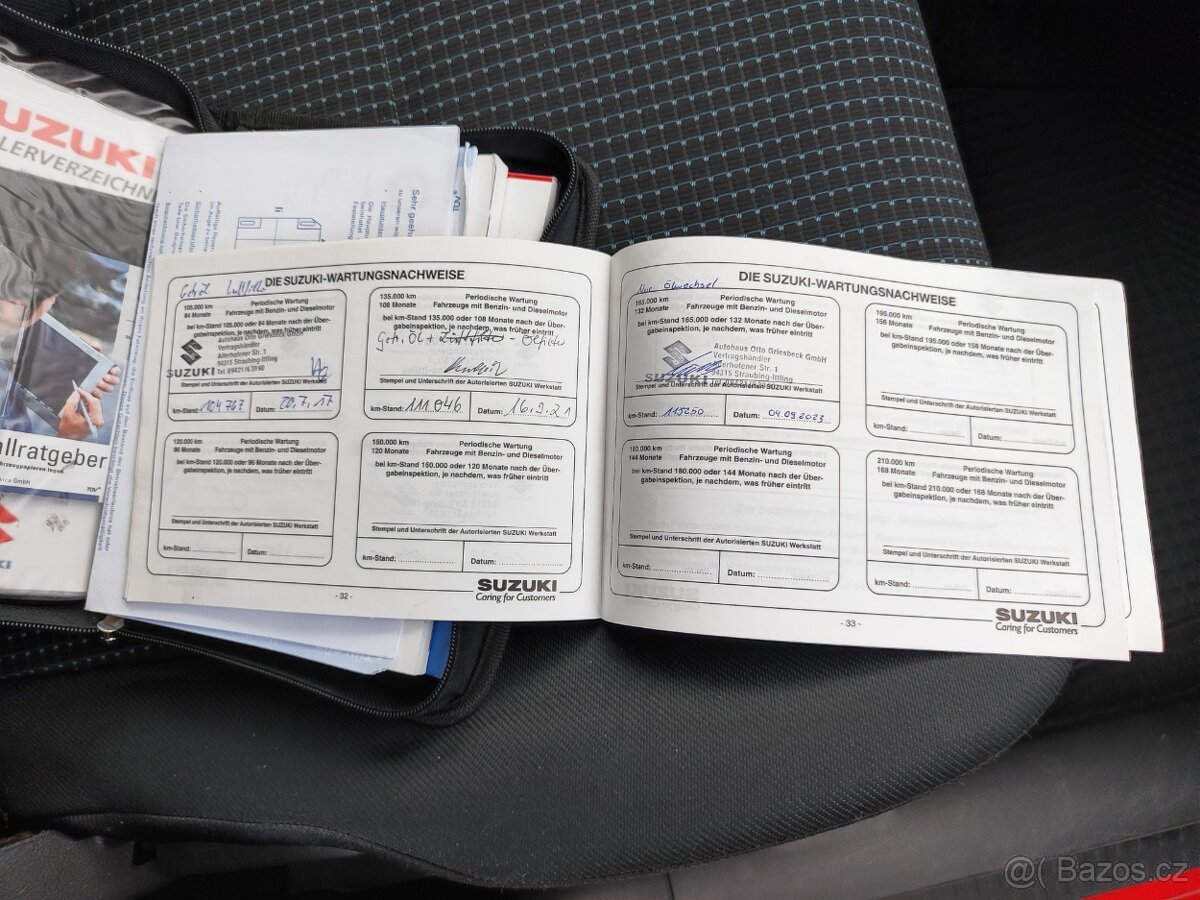 SUZUKI
LERVERZEICHN
allratgeber
Sehr geehr
TÜV
DIE SUZUKI-WARTUNGSNACHWEISE
105.000 km
84 Monate
Periodische Wartung
Fahrzeuge mit Benzin- und Dieselmotor
bei km-Stand 105.000 oder 84 Monate nach der Über-
gabeinspektion, je nachdem, was früher eintritt
Autohaus Otto Griesbeck GmbH
Vertragshändler
Aiterhofener Str. 1
94315 Straubing-Ittling
SUZUKI Tel. 09421/6 39 90
Stempel und Unterschrift der Autorisierten SUZUKI Werkstatt
km-Stand: 104 767 Datum: 20.7.17
135.000 km
108 Monate
Periodische Wartung
Fahrzeuge mit Benzin- und Dieselmotor
bei km-Stand 135.000 oder 108 Monate nach der Über-
gabeinspektion, je nachdem, was früher eintritt
Stempel und Unterschrift der Autorisierten SUZUKI Werkstatt
km-Stand: 111 046 Datum: 16.9.21
120.000 km
96 Monate
Periodische Wartung
Fahrzeuge mit Benzin- und Dieselmotor
bei km-Stand 120.000 oder 96 Monate nach der Über-
gabeinspektion, je nachdem, was früher eintritt
Stempel und Unterschrift der Autorisierten SUZUKI Werkstatt
km-Stand: Datum:
150.000 km
120 Monate
Periodische Wartung
Fahrzeuge mit Benzin- und Dieselmotor
bei km-Stand 150.000 oder 120 Monate nach der Über-
gabeinspektion, je nachdem, was früher eintritt
Stempel und Unterschrift der Autorisierten SUZUKI Werkstatt
km-Stand: Datum:
- 32 -
SUZUKI
Caring for Customers
DIE SUZUKI-WARTUNGSNACHWEISE
Nur Ölwechsel
165.000 km
132 Monate
Periodische Wartung
Fahrzeuge mit Benzin- und Dieselmotor
bei km-Stand 165.000 oder 132 Monate nach der Über-
gabeinspektion, je nachdem, was früher eintritt
Autohaus Otto Griesbeck GmbH
Vertragshändler
Aiterhofener Str. 1
94315 Straubing-Ittling
SUZUKI
Stempel und Unterschrift der Autorisierten SUZUKI Werkstatt
km-Stand: 115250 Datum: 04.09.2023
195.000 km
156 Monate
Periodische Wartung
Fahrzeuge mit Benzin- und Dieselmotor
bei km-Stand 195.000 oder 156 Monate nach der Über-
gabeinspektion, je nachdem, was früher eintritt
Stempel und Unterschrift der Autorisierten SUZUKI Werkstatt
km-Stand: Datum:
180.000 km
144 Monate
Periodische Wartung
Fahrzeuge mit Benzin- und Dieselmotor
bei km-Stand 180.000 oder 144 Monate nach der Über-
gabeinspektion, je nachdem, was früher eintritt
Stempel und Unterschrift der Autorisierten SUZUKI Werkstatt
km-Stand: Datum:
210.000 km
168 Monate
Periodische Wartung
Fahrzeuge mit Benzin- und Dieselmotor
bei km-Stand 210.000 oder 168 Monate nach der Über-
gabeinspektion, je nachdem, was früher eintritt
Stempel und Unterschrift der Autorisierten SUZUKI Werkstatt
km-Stand: Datum:
- 33 -
SUZUKI
Caring for Customers
@( Bazos.cz